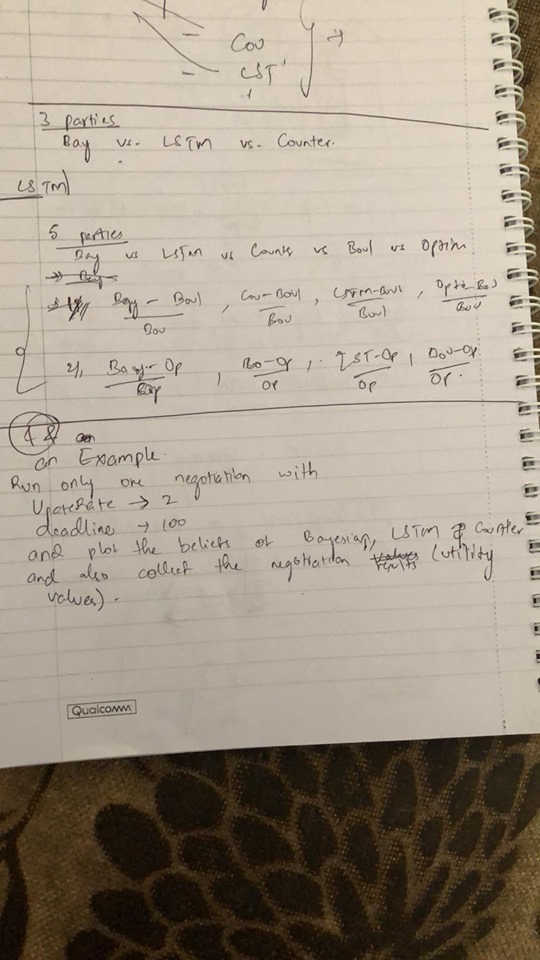 - Cou
- LST
3 parties
Bay vs. LSTM vs. Counter.
LSTM)
5 parties
Bay vs LSTM vs Counte vs Boul vs Optim
Bay - Boul , Cou-Boul , LSTM-Boul , Opti-Bou
Bou Bou Boul Bou
2), Bay - Op , Bo-Op , LST-Op , Op
Op Op Op.
an Example.
Run only one negotiation with
UpateRate → 2
deadline → 100
and plot the beliefs of Bayesian, LSTM & Counter
and also collect the negotiation results (utility
values).
Qualcomm